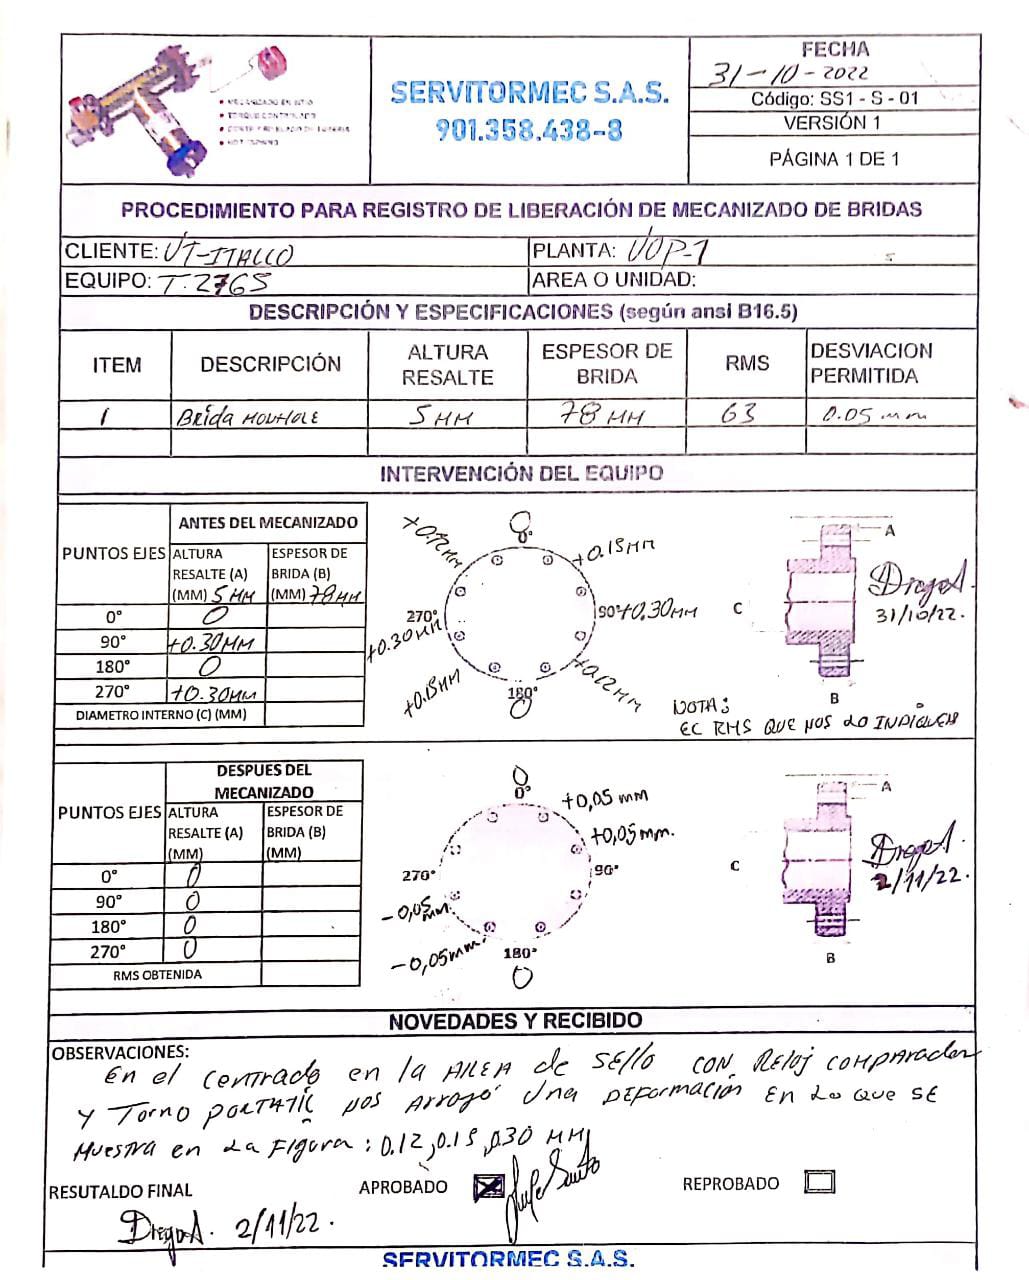 FECHA
31-10-2022
Código: SS1 - S - 01
VERSIÓN 1
PÁGINA 1 DE 1
SERVITORMEC S.A.S.
901.358.438-8
MECANIZADO EN SITIO
TORQUE CONTROLADO
PROCEDIMIENTO PARA REGISTRO DE LIBERACIÓN DE MECANIZADO DE BRIDAS
CLIENTE: UT-ITALCO
PLANTA: UOP-1
EQUIPO: T.2765
AREA O UNIDAD:
DESCRIPCIÓN Y ESPECIFICACIONES (según ansi B16.5)
ITEM DESCRIPCIÓN ALTURA RESALTE ESPESOR DE BRIDA RMS DESVIACION PERMITIDA
1 Brida MOUHOLE 5 MM 78 MM 63 0.05 mm
INTERVENCIÓN DEL EQUIPO
ANTES DEL MECANIZADO
PUNTOS EJES
ALTURA RESALTE (A) (MM) 5 MM
ESPESOR DE BRIDA (B) (MM) 78 MM
0° 0
90° +0.30 MM
180° 0
270° +0.30 MM
DIAMETRO INTERNO (C) (MM)
0
0°
+0.12 MM
+0.15 MM
270°
+0.30 MM
90° +0.30 MM
+0.15 MM
+0.12 MM
180°
0
A
C
B
DiegoA.
31/10/22.
NOTA:
EL RMS QUE NOS LO INDIQUEN
DESPUES DEL
MECANIZADO
PUNTOS EJES
ALTURA RESALTE (A) (MM)
ESPESOR DE BRIDA (B) (MM)
0° 0
90° 0
180° 0
270° 0
RMS OBTENIDA
0
0°
+0,05 mm
+0,05 mm.
270°
90°
-0,05 mm.
-0,05 mm.
180°
0
A
C
B
DiegoA.
2/11/22.
NOVEDADES Y RECIBIDO
OBSERVACIONES:
En el centrado en la AREA de SELLO CON Reloj comparador
y Torno PORTATIL nos Arrojó Una DEFormación En Lo QUE SE
MUESTRA en La FIGURA: 0.12, 0.15, 0.30 MM
RESUTALDO FINAL
APROBADO
REPROBADO
DiegoA. 2/11/22.
SERVITORMEC S.A.S.